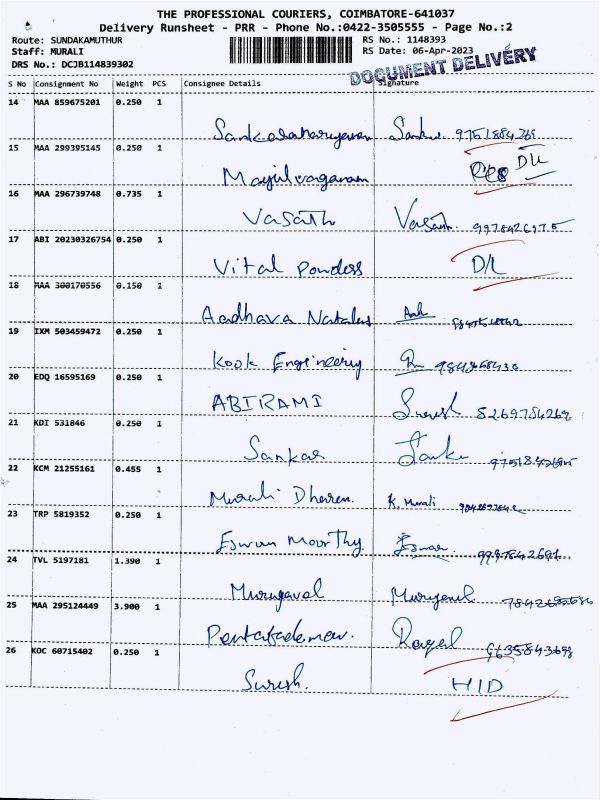 THE PROFESSIONAL COURIERS, COIMBATORE-641037
Delivery Runsheet - PRR - Phone No.:0422-3505555 - Page No.:2
Route: SUNDAKAMUTHUR RS No.: 1148393
Staff: MURALI RS Date: 06-Apr-2023
DRS No.: DCJB114839302 DOCUMENT DELIVERY
S No Consignment No Weight PCS Consignee Details Signature
14 MAA 859675201 0.250 1
Sankaranarayanan Sanku 9751884269
15 MAA 299395145 0.250 1
Mayilvaganam D/L
16 MAA 296739748 0.735 1
Vasath Vasath
17 ABI 20230326754 0.250 1
Vital Ponders D/L
18 MAA 300170556 0.150 1
Aadhava
19 IXM 503459472 0.250 1
Kook Engineering
20 EDQ 16595169 0.250 1
ABIRAMI Suresh 8269784269
21 KDI 531846 0.250 1
Sankar
22 KCM 21255161 0.455 1
Murali Dharen. K. Murali
23 TRP 5819352 0.250 1
Eswun Moorthy Eswar.
24 TVL 5197181 1.390 1
Murugavel
25 MAA 295124449 3.900 1
26 KOC 60715402 0.250 1
Suresh. HID